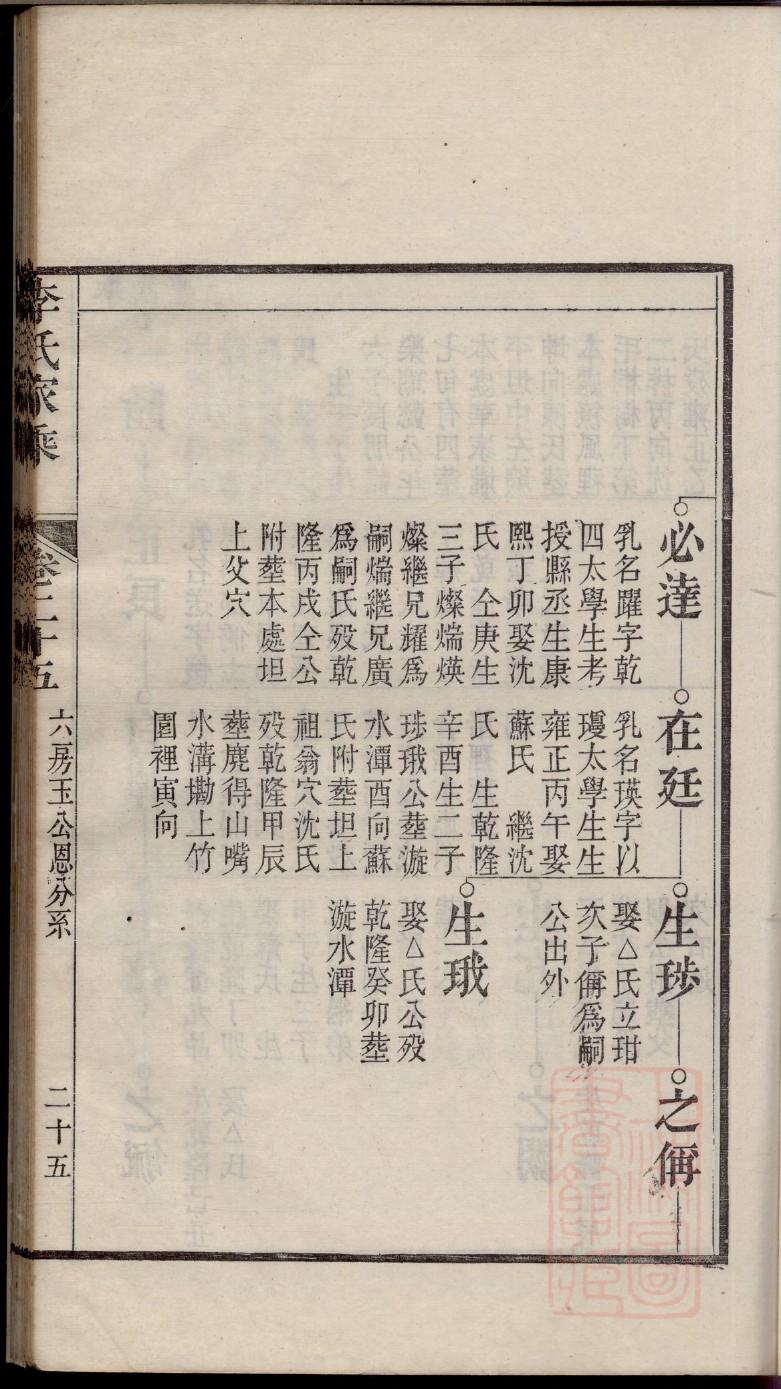 必達
乳名躍字乾
四太學生考
授縣丞生康
熙丁卯娶沈
氏 仝庚生
三子燦煓煐
燦繼兄耀爲
嗣煓繼兄廣
爲嗣氏歿乾
隆丙戌仝公
附塟本處坦
上父穴
在廷
乳名瑛字以
璦太學生生
雍正丙午娶
蘇氏 繼沈
氏 生乾隆
辛酉生二子
珘玻公塟漩
水潭酉向蘇
氏附塟坦上
祖翁穴沈氏
歿乾隆甲辰
塟麂得山嘴
水溝墈上竹
園裡寅向
生珘
娶△氏立玵
次子侢爲嗣
公出外
生玻
娶△氏公歿
乾隆癸卯塟
漩水潭
之侢
李氏家乘
卷二十五
六房玉公恩分系
二十五